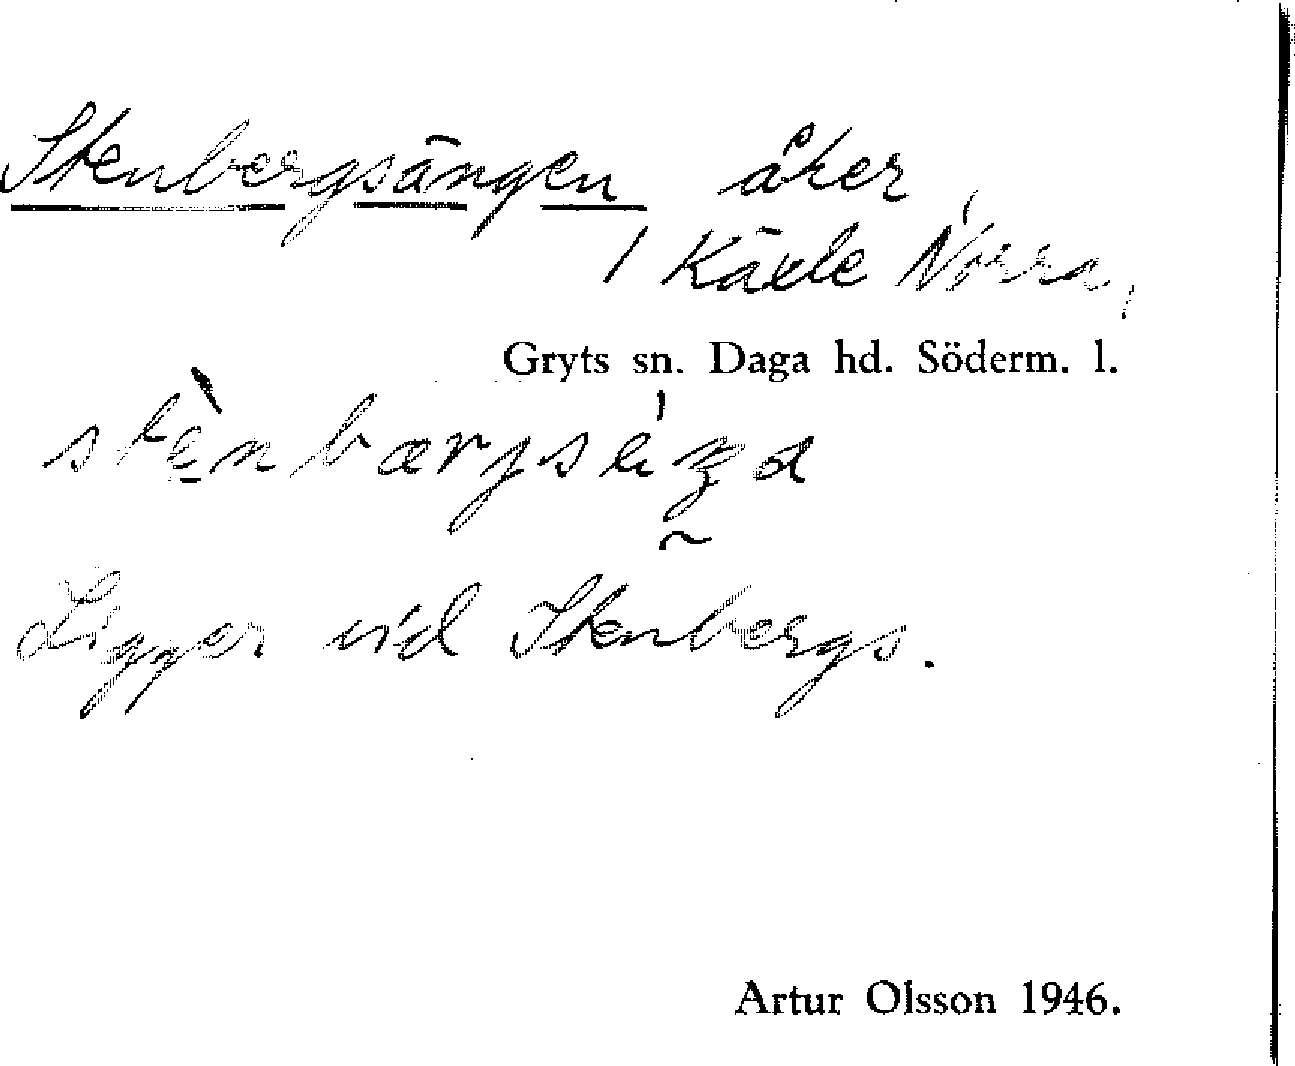 Stenbergsängen åker
1 Käxle Norra,
Gryts sn. Daga hd. Söderm. l.
Ligger vid Stenbergs.
Artur Olsson 1946.